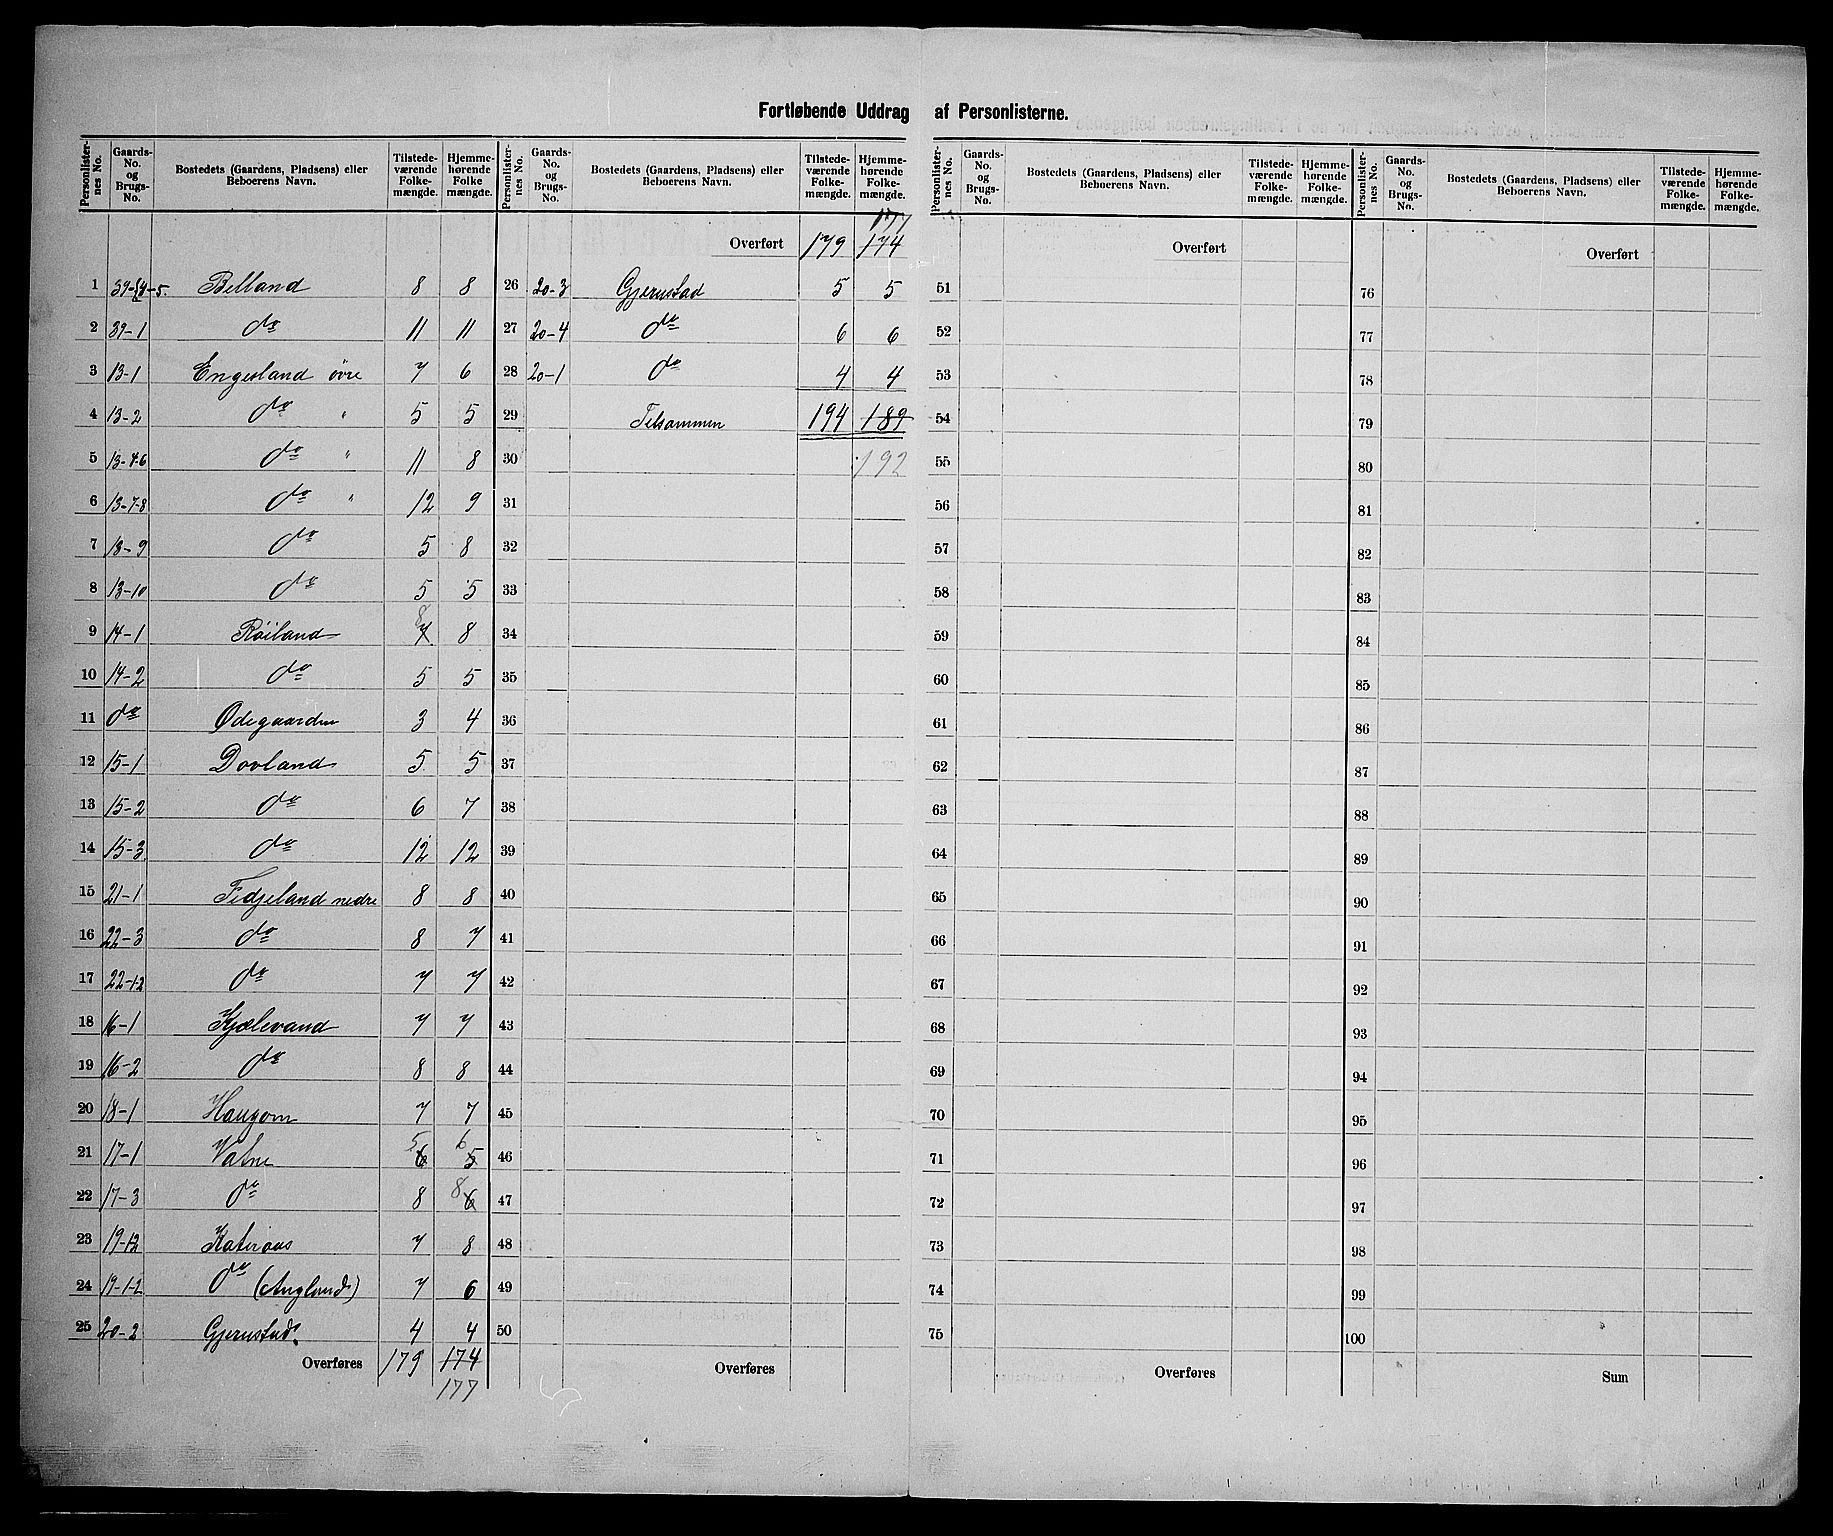 Fortløbende Uddrag af Personlisterne.
Personlisternes No. | Gaards-No. og Brugs-No. | Bostedets (Gaardens, Pladsens) eller Beboerens Navn. | Tilstedeværende Folkemængde. | Hjemmehørende Folkemængde.
1 39- -5. Belland 8 8
2 39-1 do 11 11
3 13-1 Engesland övre 7 6
4 13-2 do " 5 5
5 13-4-6 do " 11 8
6 13-7-8 do " 12 9
7 13-9 do 5 8
8 13-10 do 5 5
9 14-1 Röiland 8 7 8
10 14-2 do 5 5
11 do Ødegaarden 3 4
12 15-1 Dovland 5 5
13 15-2 do 6 7
14 15-3 do 12 12
15 21-1 Fedjeland nedre 8 8
16 22-3 do 8 7
17 22-1-2 do 7 7
18 16-1 Kjælevand 7 7
19 16-2 do 8 8
20 18-1 Haugom 7 7
21 17-1 Vatne 5 6 6 5
22 17-3 do 8 8 6
23 19-12 Kateraas 7 8
24 19-1-2 do (Angland) 7 6
25 20-2 Gjerustad 4 4
Overføres 179 174
177
Personlisternes No. | Gaards-No. og Brugs-No. | Bostedets (Gaardens, Pladsens) eller Beboerens Navn. | Tilstedeværende Folkemængde. | Hjemmehørende Folkemængde.
177
Overført 179 174
26 20-3 Gjerustad 5 5
27 20-4 do 6 6
28 20-1 do 4 4
29 Tilsammen 194 189
30 192
31
32
33
34
35
36
37
38
39
40
41
42
43
44
45
46
47
48
49
50
Overføres
Personlisternes No. | Gaards-No. og Brugs-No. | Bostedets (Gaardens, Pladsens) eller Beboerens Navn. | Tilstedeværende Folkemængde. | Hjemmehørende Folkemængde.
Overført
51
52
53
54
55
56
57
58
59
60
61
62
63
64
65
66
67
68
69
70
71
72
73
74
75
Overføres
Personlisternes No. | Gaards-No. og Brugs-No. | Bostedets (Gaardens, Pladsens) eller Beboerens Navn. | Tilstedeværende Folkemængde. | Hjemmehørende Folkemængde.
Overført
76
77
78
79
80
81
82
83
84
85
86
87
88
89
90
91
92
93
94
95
96
97
98
99
100
Sum